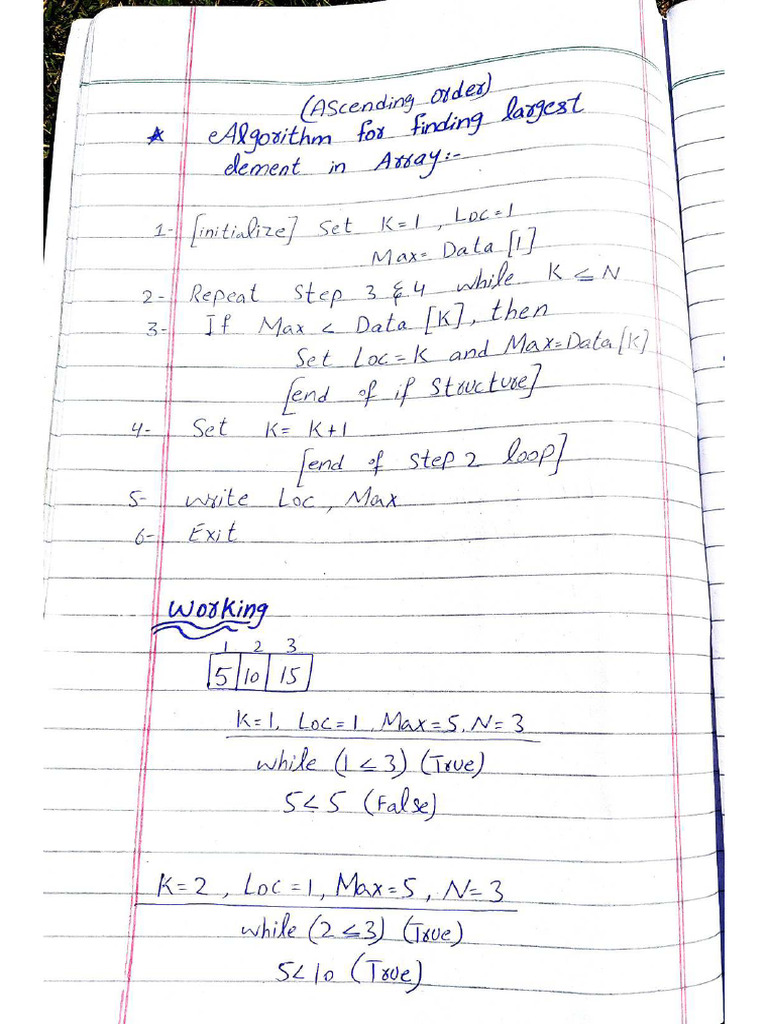 (Ascending order)
* Algorithm for finding largest
element in Array:-
1- [initialize] Set K=1, Loc=1
Max= Data [1]
2- Repeat Step 3 & 4 while K ≤ N
3- If Max < Data [K], then
Set Loc=K and Max=Data[K]
[end of if Structure]
4- Set K= K+1
[end of step 2 loop]
5- write Loc, Max
6- Exit
Working
1 2 3
5 10 15
K=1, Loc=1, Max=5, N=3
while (1≤3) (True)
5<5 (False)
K=2, Loc=1, Max=5, N=3
while (2≤3) (True)
5<10 (True)